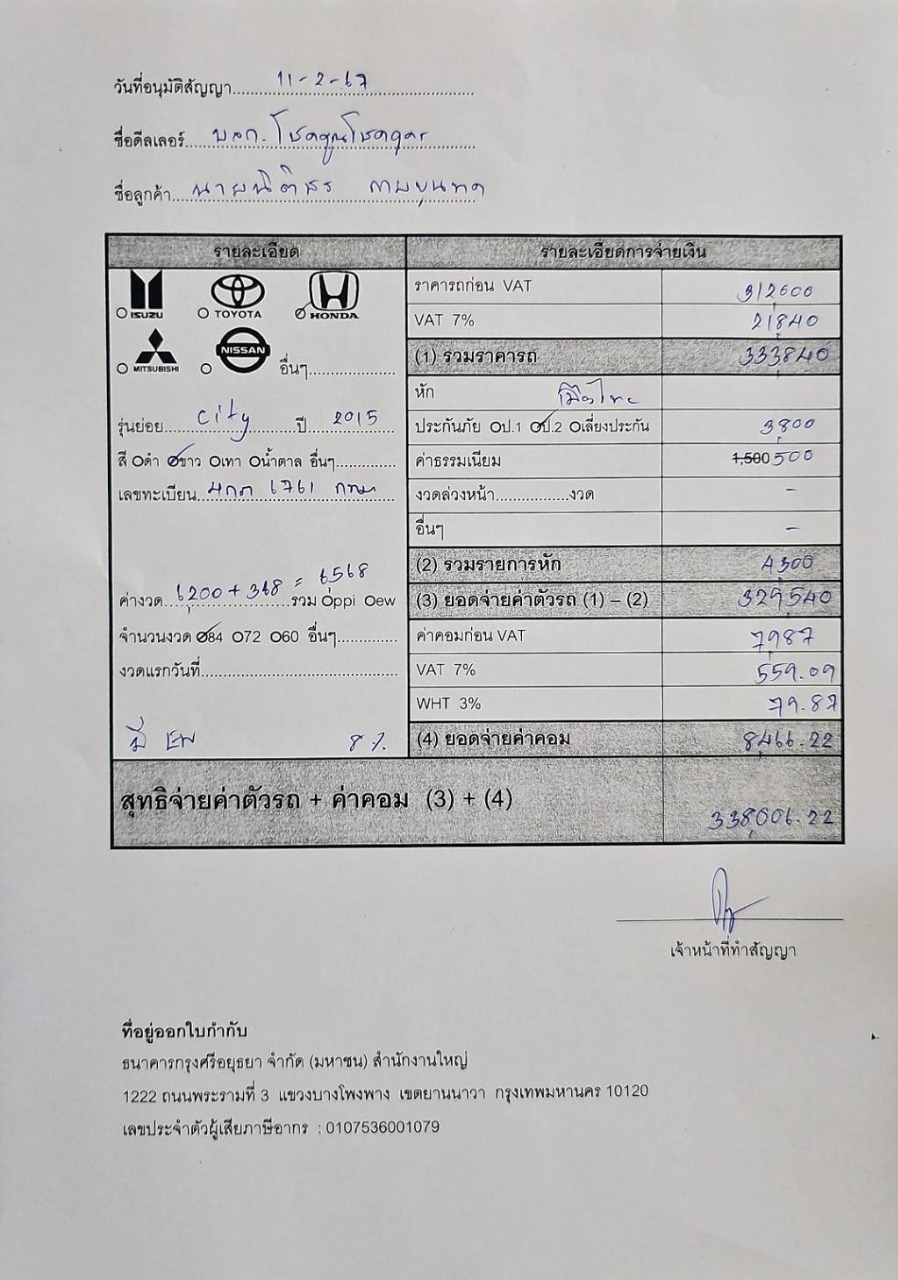 วันที่อนุมัติสัญญา 11-2-67
ชื่อดีลเลอร์ บจก.
ชื่อลูกค้า นายนิติธร
รายละเอียด
ISUZU TOYOTA HONDA
MITSUBISHI NISSAN อื่นๆ
รุ่นย่อย city ปี 2015
สี ดำ ขาว เทา น้ำตาล อื่นๆ
เลขทะเบียน 6761 กทม
ค่างวด 6,200 + 368 = 6568 รวม ppi ew
จำนวนงวด 84 72 60 อื่นๆ
งวดแรกวันที่
มี 8%
รายละเอียดการจ่ายเงิน
ราคารถก่อน VAT 312,000
VAT 7% 21,840
(1) รวมราคารถ 333,840
หัก
ประกันภัย ป.1 ป.2 เลี่ยงประกัน 3,800
ค่าธรรมเนียม 1,500 500
งวดล่วงหน้า งวด -
อื่นๆ -
(2) รวมรายการหัก 4,300
(3) ยอดจ่ายค่าตัวรถ (1) – (2) 329,540
ค่าคอมก่อน VAT 7,987
VAT 7% 559.09
WHT 3% 79.87
(4) ยอดจ่ายค่าคอม 8,466.22
สุทธิจ่ายค่าตัวรถ + ค่าคอม (3) + (4) 338,006.22
เจ้าหน้าที่ทำสัญญา
ที่อยู่ออกใบกำกับ
ธนาคารกรุงศรีอยุธยา จำกัด (มหาชน) สำนักงานใหญ่
1222 ถนนพระรามที่ 3 แขวงบางโพงพาง เขตยานนาวา กรุงเทพมหานคร 10120
เลขประจำตัวผู้เสียภาษีอากร : 0107536001079